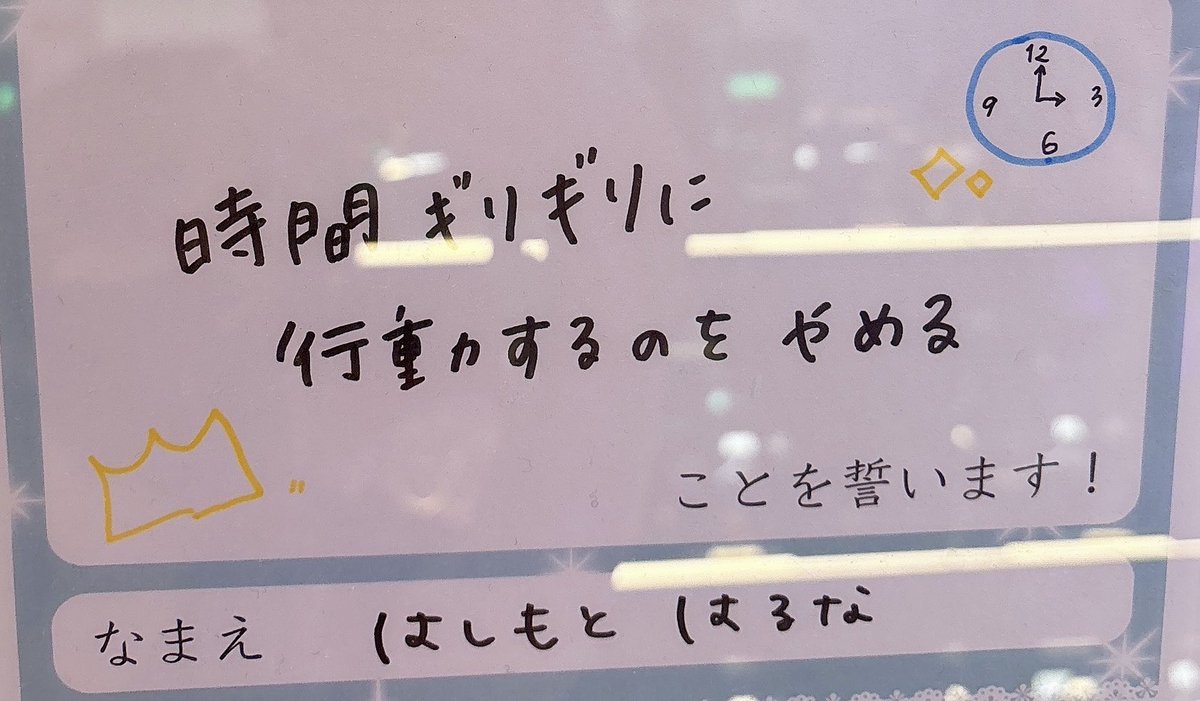 12
9 3
6
時間ギリギリに
行動するのをやめる
ことを誓います!
なまえ はしもと はるな